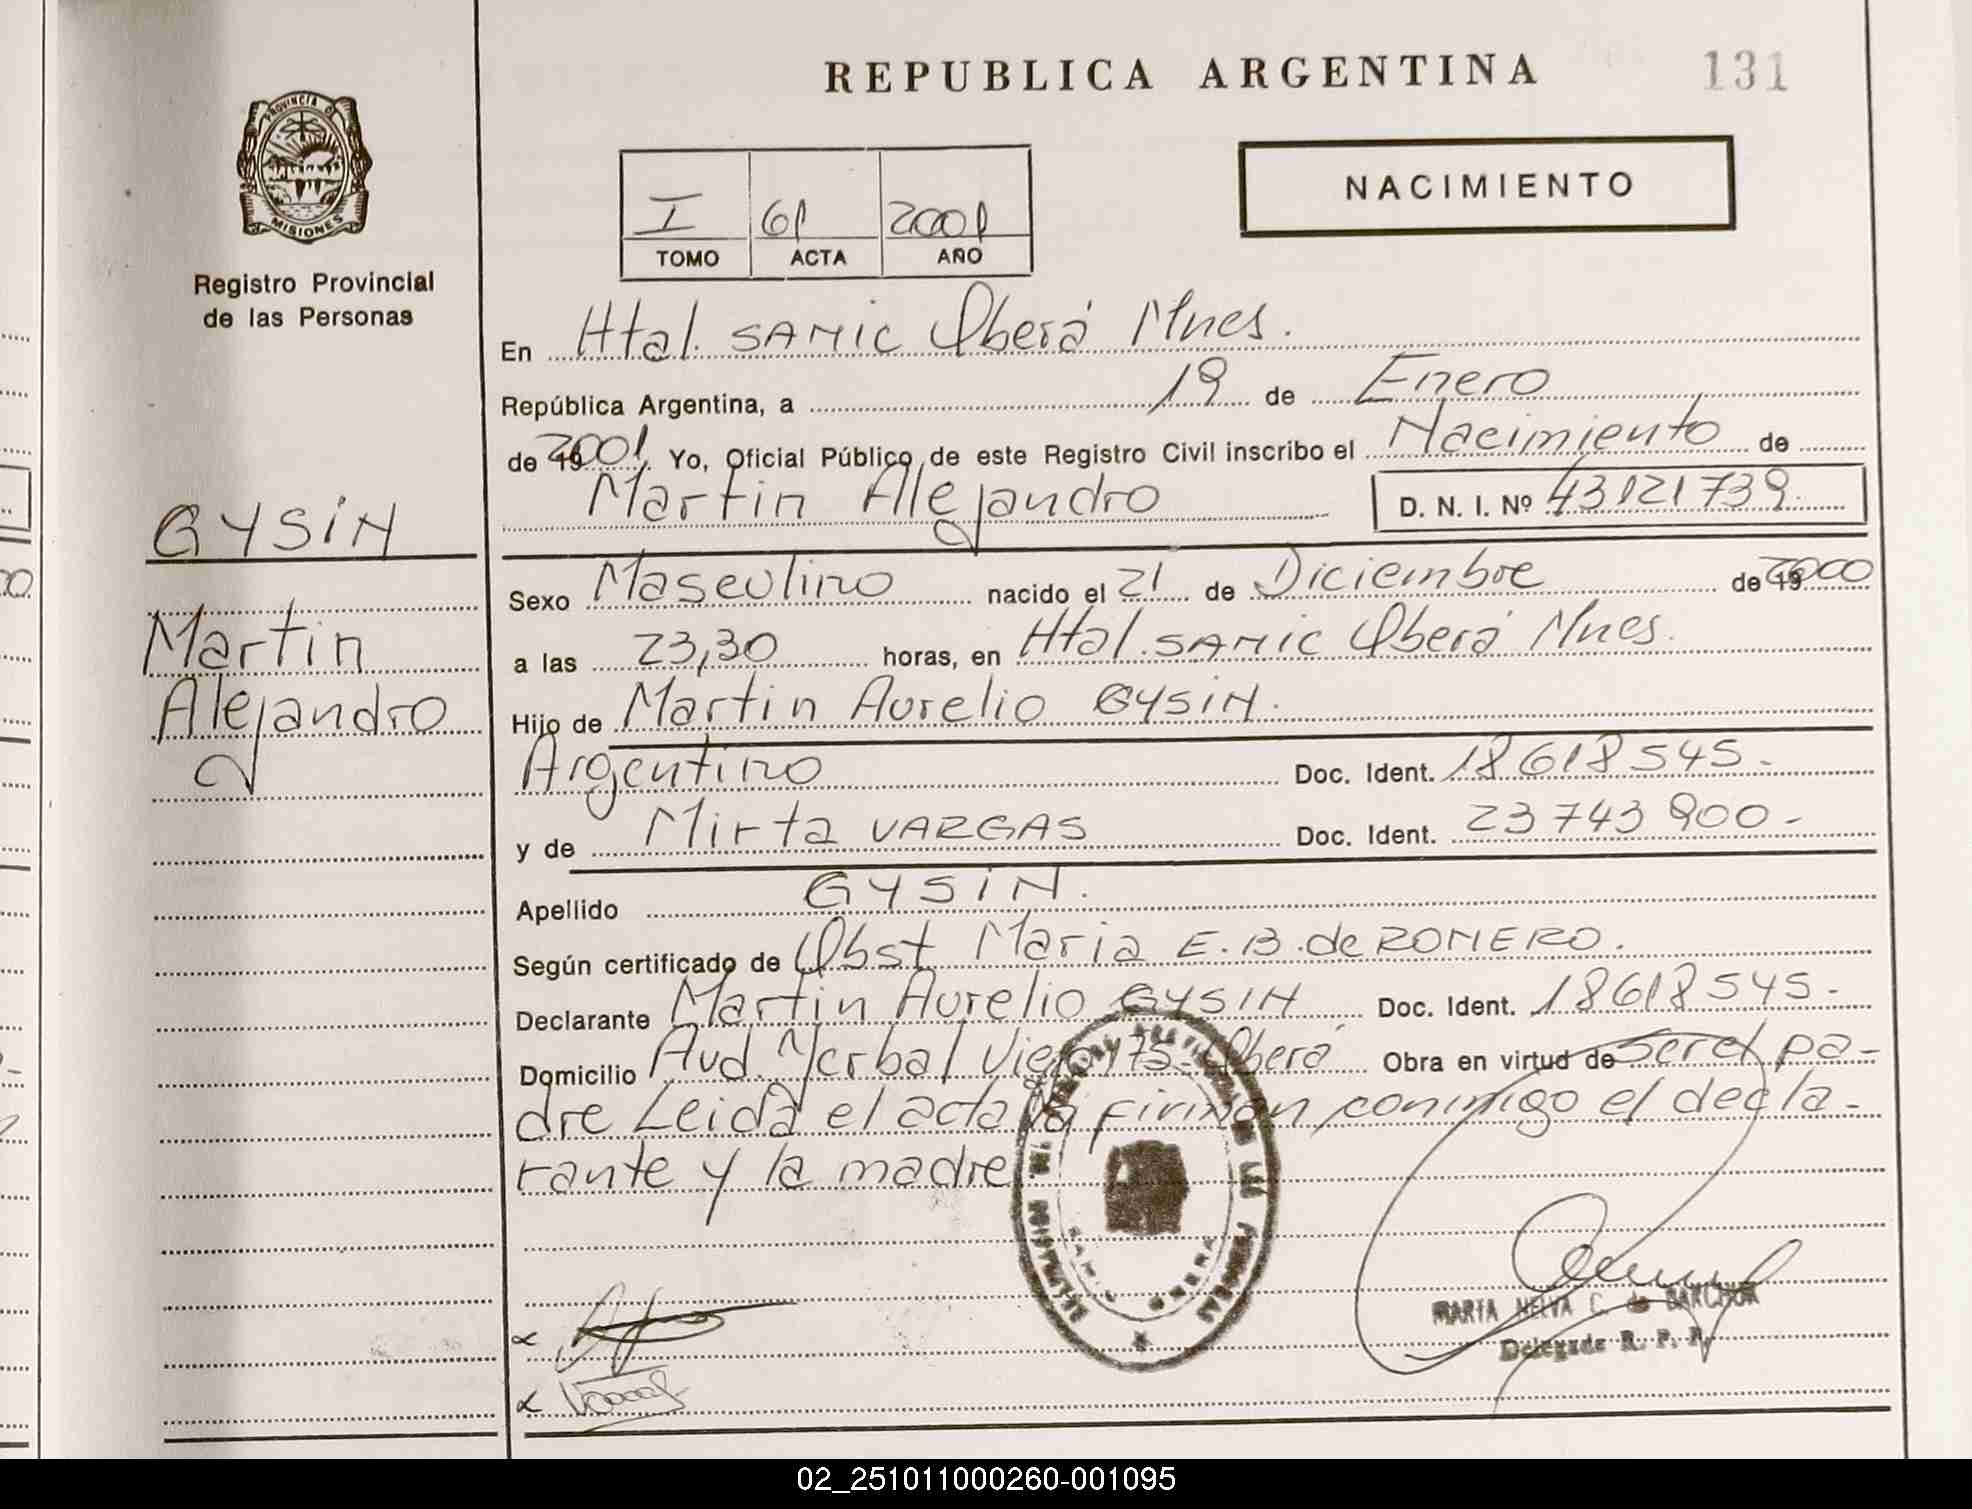 REPUBLICA ARGENTINA
131
PROVINCIA D
MISIONES
Registro Provincial
de las Personas
NACIMIENTO
I 61 2001
TOMO ACTA AÑO
En Htal. SAMIC Oberá Mnes.
República Argentina, a 19 de Enero
de 2001. Yo, Oficial Público de este Registro Civil inscribo el Nacimiento de
Martin Alejandro D. N. I. Nº 43121739.
GYSIN
Martin
Alejandro
Sexo Masculino nacido el 21 de Diciembre de 2000
a las 23,30 horas, en Htal. SAMIC Oberá Mnes.
Hijo de Martin Aurelio GYSIN.
Argentino Doc. Ident. 18618545.-
y de Mirta VARGAS Doc. Ident. 23743900-
Apellido GYSIN.
Según certificado de Obst Maria E. B. de ROMERO.
Declarante Martin Aurelio GYSIN Doc. Ident. 18618545.-
Domicilio Avd. Yerbal Viejo 175-Oberá Obra en virtud de Ser el pa-
dre Leida el acta la firman conmigo el decla-
rante y la madre
MARIA NELVA C. de
Delegada R. P. P.
02_251011000260-001095